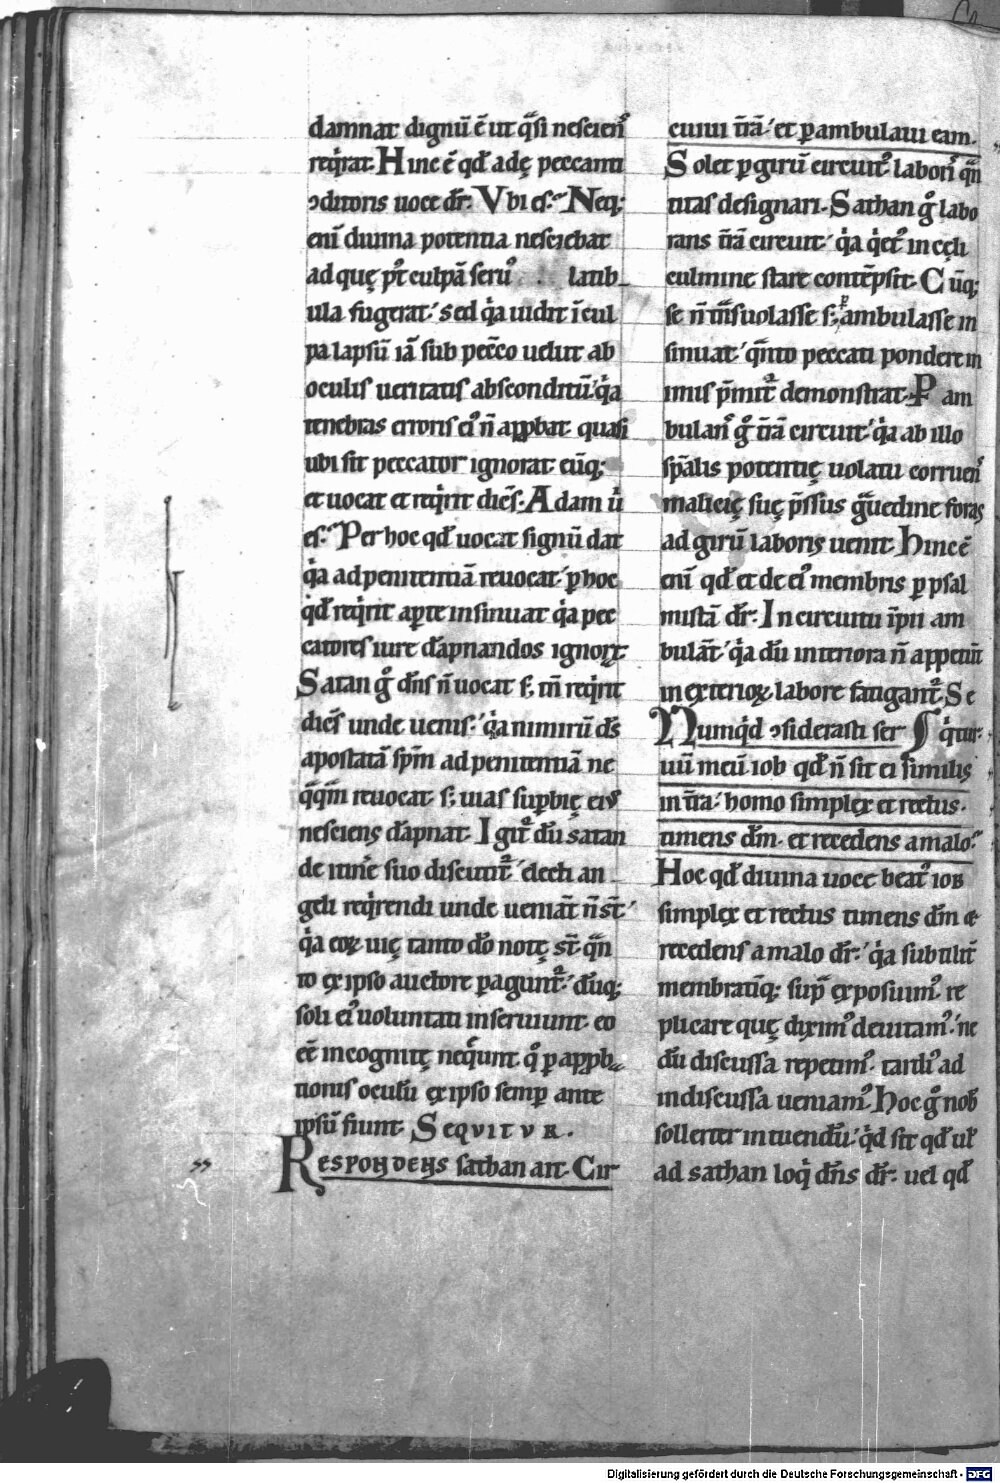 damnat dignū ē ut q̄si nescien᷒
req̇rat. Hinc ē qđ adę peccanti
ɔditoris uoce dr̄. Vbi es? Neq;
eni᷒ diuina potentia nesciebat
ad quę p᷒t culpā seru᷒ latib
ula fugerat. sed q̇a uidit ī cul
pa lapsū iā sub pecc̄o uelut ab
oculis ueritatis absconditū. q̇a
tenebras erroris ei᷒ n̄ app̱bat. quasi
ubi sit peccator ignorat. eūq;
et uocat et req̇rit dicēs. Adam u̇
es? Per hoc qđ uocat signū dat
q̇a ad penitentiā reuocat. ꝑ hoc
q̇đ req̇rit aꝑte insinuat q̇a pec
catores iure dāpnandos ignorꝫ.
Satan g̊ dn̄s n̄ uocat s; tn̄ req̇rit
dicēs unde uenis. q̇a nimirū dš
apostatā sp̄m ad penitentiā ne
q̄q̄m reuocat. s; uias suꝑbię ei᷒
nesciens dāpnat. Igit᷒ dū satan
de itin̄e suo discutit᷒. electi an
geli req̇rendi unde ueniāt n̄ st̄.
q̇a eoꝝ uię tanto dō notę st̄ q̄n
to ex ipso auctore ꝑagunt᷒. dūq;
soli ei᷒ uoluntati inseruiunt. eo
eē incognitę neq̇unt. q̊ ꝑ app̱b
tionis oculū ex ipso semꝑ ante
ipsū fiunt. SEQVITVR.
Respondens sathan ait. Cir
cuiui tr̄ā. et ꝑambulaui eam.
Solet ꝑ girū circuit᷒ labori᷒ q̄n
titas designari. Sathan g̊ labo
rans tr̄ā circuit. q̇a q̇et᷒ in cęli
culmine stare contēpsit. Cūq;
se n̄ tn̄suolasse s; ꝑambulasse in
sinuat. q̄nto peccati pondere in
imis p̄mit᷒ demonstrat. Pam
bulans᷒ g̊ tr̄ā circuit. q̇a ab illo
sp̄alis potentię uolatu corruen᷒
malicię suę p̄ssus g̊uedine foras
ad girū laboris uenit. Hinc ē
eni᷒ qđ et de ei᷒ membris ꝑ psal
mistā dr̄. In circuitu īpii am
bulāt. q̇a dū interiora n̄ appetūt
in exterioꝝ labore fatigant᷒. Se
Numq̇d ɔsiderasti ser q̇tur.
uū meū iob qđ n̄ sit ei similis
in tr̄a. homo simplex et rectus.
timens dm̄. et recedens a malo?
Hoc qđ diuina uoce beat᷒ iob
simplex et rectus timens dm̄ &
recedens a malo dr̄. q̇a subtilit̄
membratīq; sup̄ exposuim᷒. re
plicare quę diximus deuitam᷒. ne
dū discussa repetim᷒. tardi᷒ ad
indiscussa ueniam᷒. Hoc g̊ nob̄
sollerter intuendū. q̇d sit qđ ul̄
ad sathan loq̇ dn̄s dr̄. uel qđ
Digitalisierung gefördert durch die Deutsche Forschungsgemeinschaft - DFG